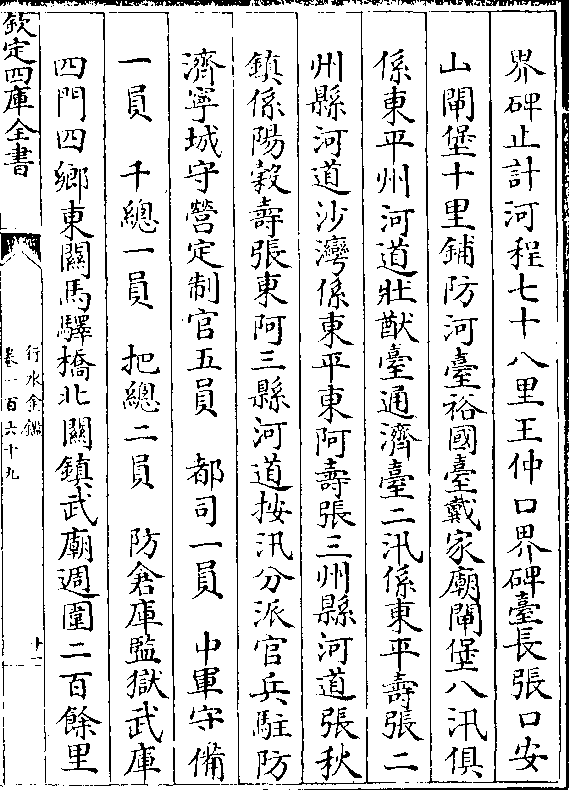 界碑止計河程七十八里王仲口界碑臺長張口安
山閘堡十里鋪防河臺裕國臺戴家廟閘堡八汛俱
係東平州河道壯猷臺通濟臺二汛係東平壽張二
州縣河道沙灣係東平東阿壽張三州縣河道張秋
鎮係陽穀壽張東阿三縣河道按汛分派官兵駐防
濟寧城守營定制官五員 都司一員 中軍守備
一員 千總一員 把總二員 防倉庫監獄武庫
四門四鄉東關馬驛橋北關鎮武廟週圍二百餘里
欽定四庫全書
行水金鑑
卷一百六十九
十一